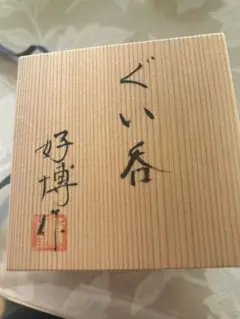 ぐい呑
好博作